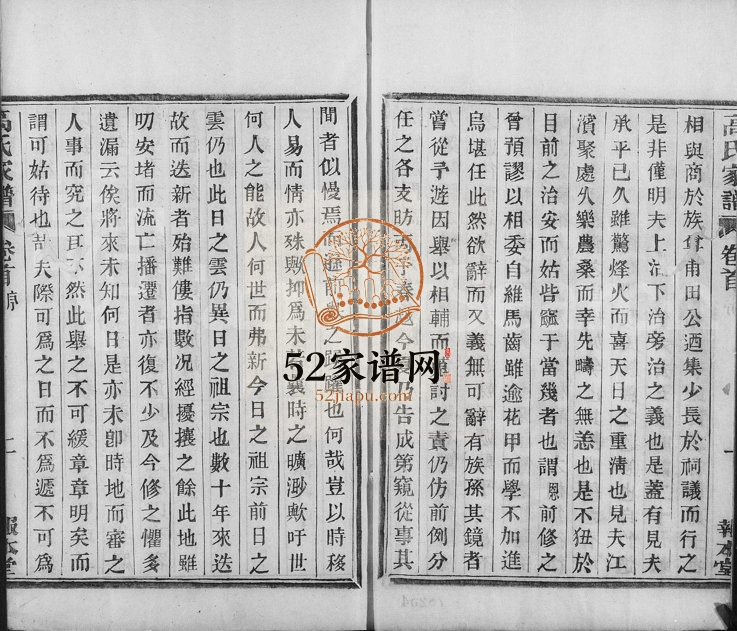 相與商於族尊甫田公迺集少長於祠議而行之
是非僅明夫上治下治旁治之義也是蓋有見夫
承平已久雖驚烽火而喜天日之重淸也見夫江
濱聚處久樂農桑而幸先疇之無恙也是不狃於
目前之治安而姑皆竊于當幾者也謂恩前修之
曾預謬以相委自維馬齒雖逾花甲而學不加進
烏堪任此然欲辭而又義無可辭有族孫其鏡者
嘗從予遊因舉以相輔而討之責仍仿前例分
任之各支昉今乃告成第窺從事其
高氏家譜 卷首 報本堂
間者似慢焉而前也何哉豈以時移
人易而情亦殊歟抑爲未襄時之曠渺歟吁世
何人之能故人何世而弗新今日之祖宗前日之
雲仍也此日之雲仍異日之祖宗也數十年來迭
故而迭新者殆難僂指數況經擾攘之餘此地雖
叨安堵而流亡播遷者亦復不少及今修之懼多
遺漏云俟將來未知何日是亦未卽時地而審之
人事而究之耳不然此舉之不可緩章章明矣而
謂可姑待也哉夫際可爲之日而不爲遞不可爲
高氏家譜 卷首 序 七 報本堂
52家谱网
52jiapu.com